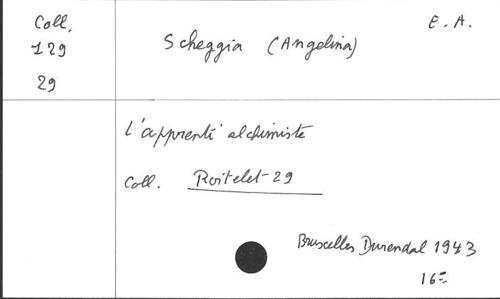 Coll.
129
29
E. A.
Scheggia (Angelina)
L'apprenti alchimiste
Coll. Roitelet-29
Bruxelles Durendal 1943
16=